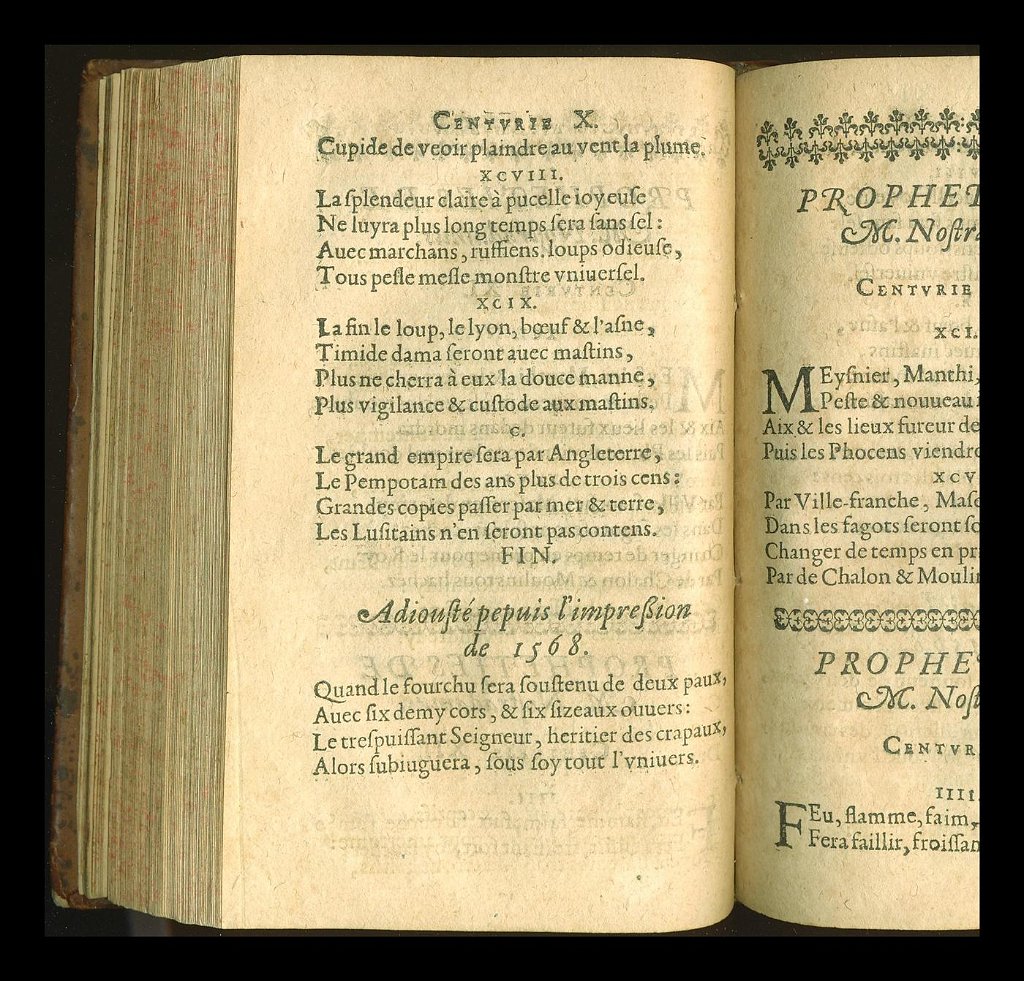 CENTVRIE X.
Cupide de veoir plaindre au vent la plume.
XCVIII.
La ſplendeur claire à pucelle ioyeuſe
Ne luyra plus long temps ſera ſans ſel:
Auec marchans, ruffiens, loups odieuſe,
Tous peſle meſle monſtre vniuerſel.
XCIX.
La fin le loup, le lyon, bœuf & l'aſne,
Timide dama ſeront auec maſtins,
Plus ne cherra à eux la douce manne,
Plus vigilance & cuſtode aux maſtins.
C.
Le grand empire ſera par Angleterre,
Le Pempotam des ans plus de trois cens:
Grandes copies paſſer par mer & terre,
Les Luſitains n'en ſeront pas contens.
FIN.
Adiouſté pepuis l'impreſſion
de 1568.
Quand le fourchu ſera ſouſtenu de deux paux,
Auec ſix demy cors, & ſix ſizeaux ouuers:
Le treſpuiſſant Seigneur, heritier des crapaux,
Alors ſubiuguera, ſous ſoy tout l'vniuers.
PROPHET
M. Noſtra
CENTVRIE
XCI.
MEyſnier, Manthi,
Peſte & nouueau
Aix & les lieux fureur de
Puis les Phocens viendro
XCV
Par Ville-franche, Maſc
Dans les fagots ſeront ſo
Changer de temps en pr
Par de Chalon & Moulin
PROPHE
M. Noſt
CENTVR
IIII.
FEu, flamme, faim,
Fera faillir, froiſſan